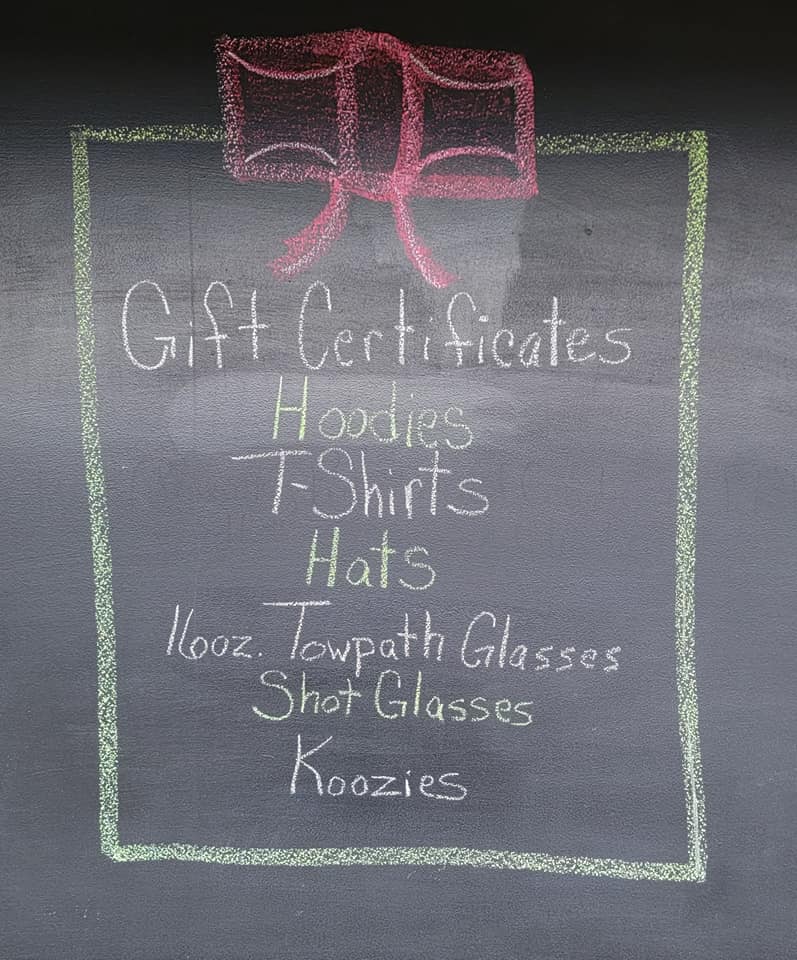 Gift Certificates
Hoodies
T-Shirts
Hats
16oz. Towpath Glasses
Shot Glasses
Koozies